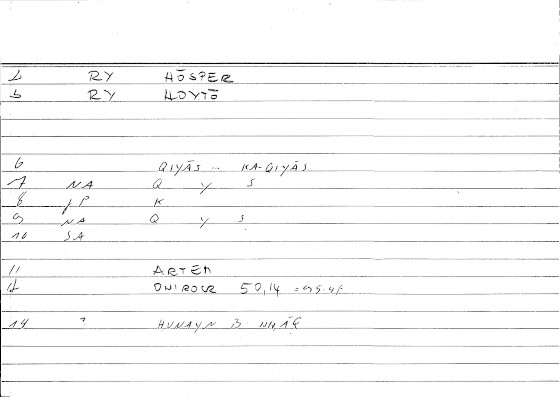 RY HŌSPER
RY HOYTŌ
6 QIYĀS .. KA-QIYĀS
7 NA Q Y S
8 K
9 NA Q Y S
10 SA
11 ARTĒM
12 ONIROCR 50,14
14 ? HUNAYN B